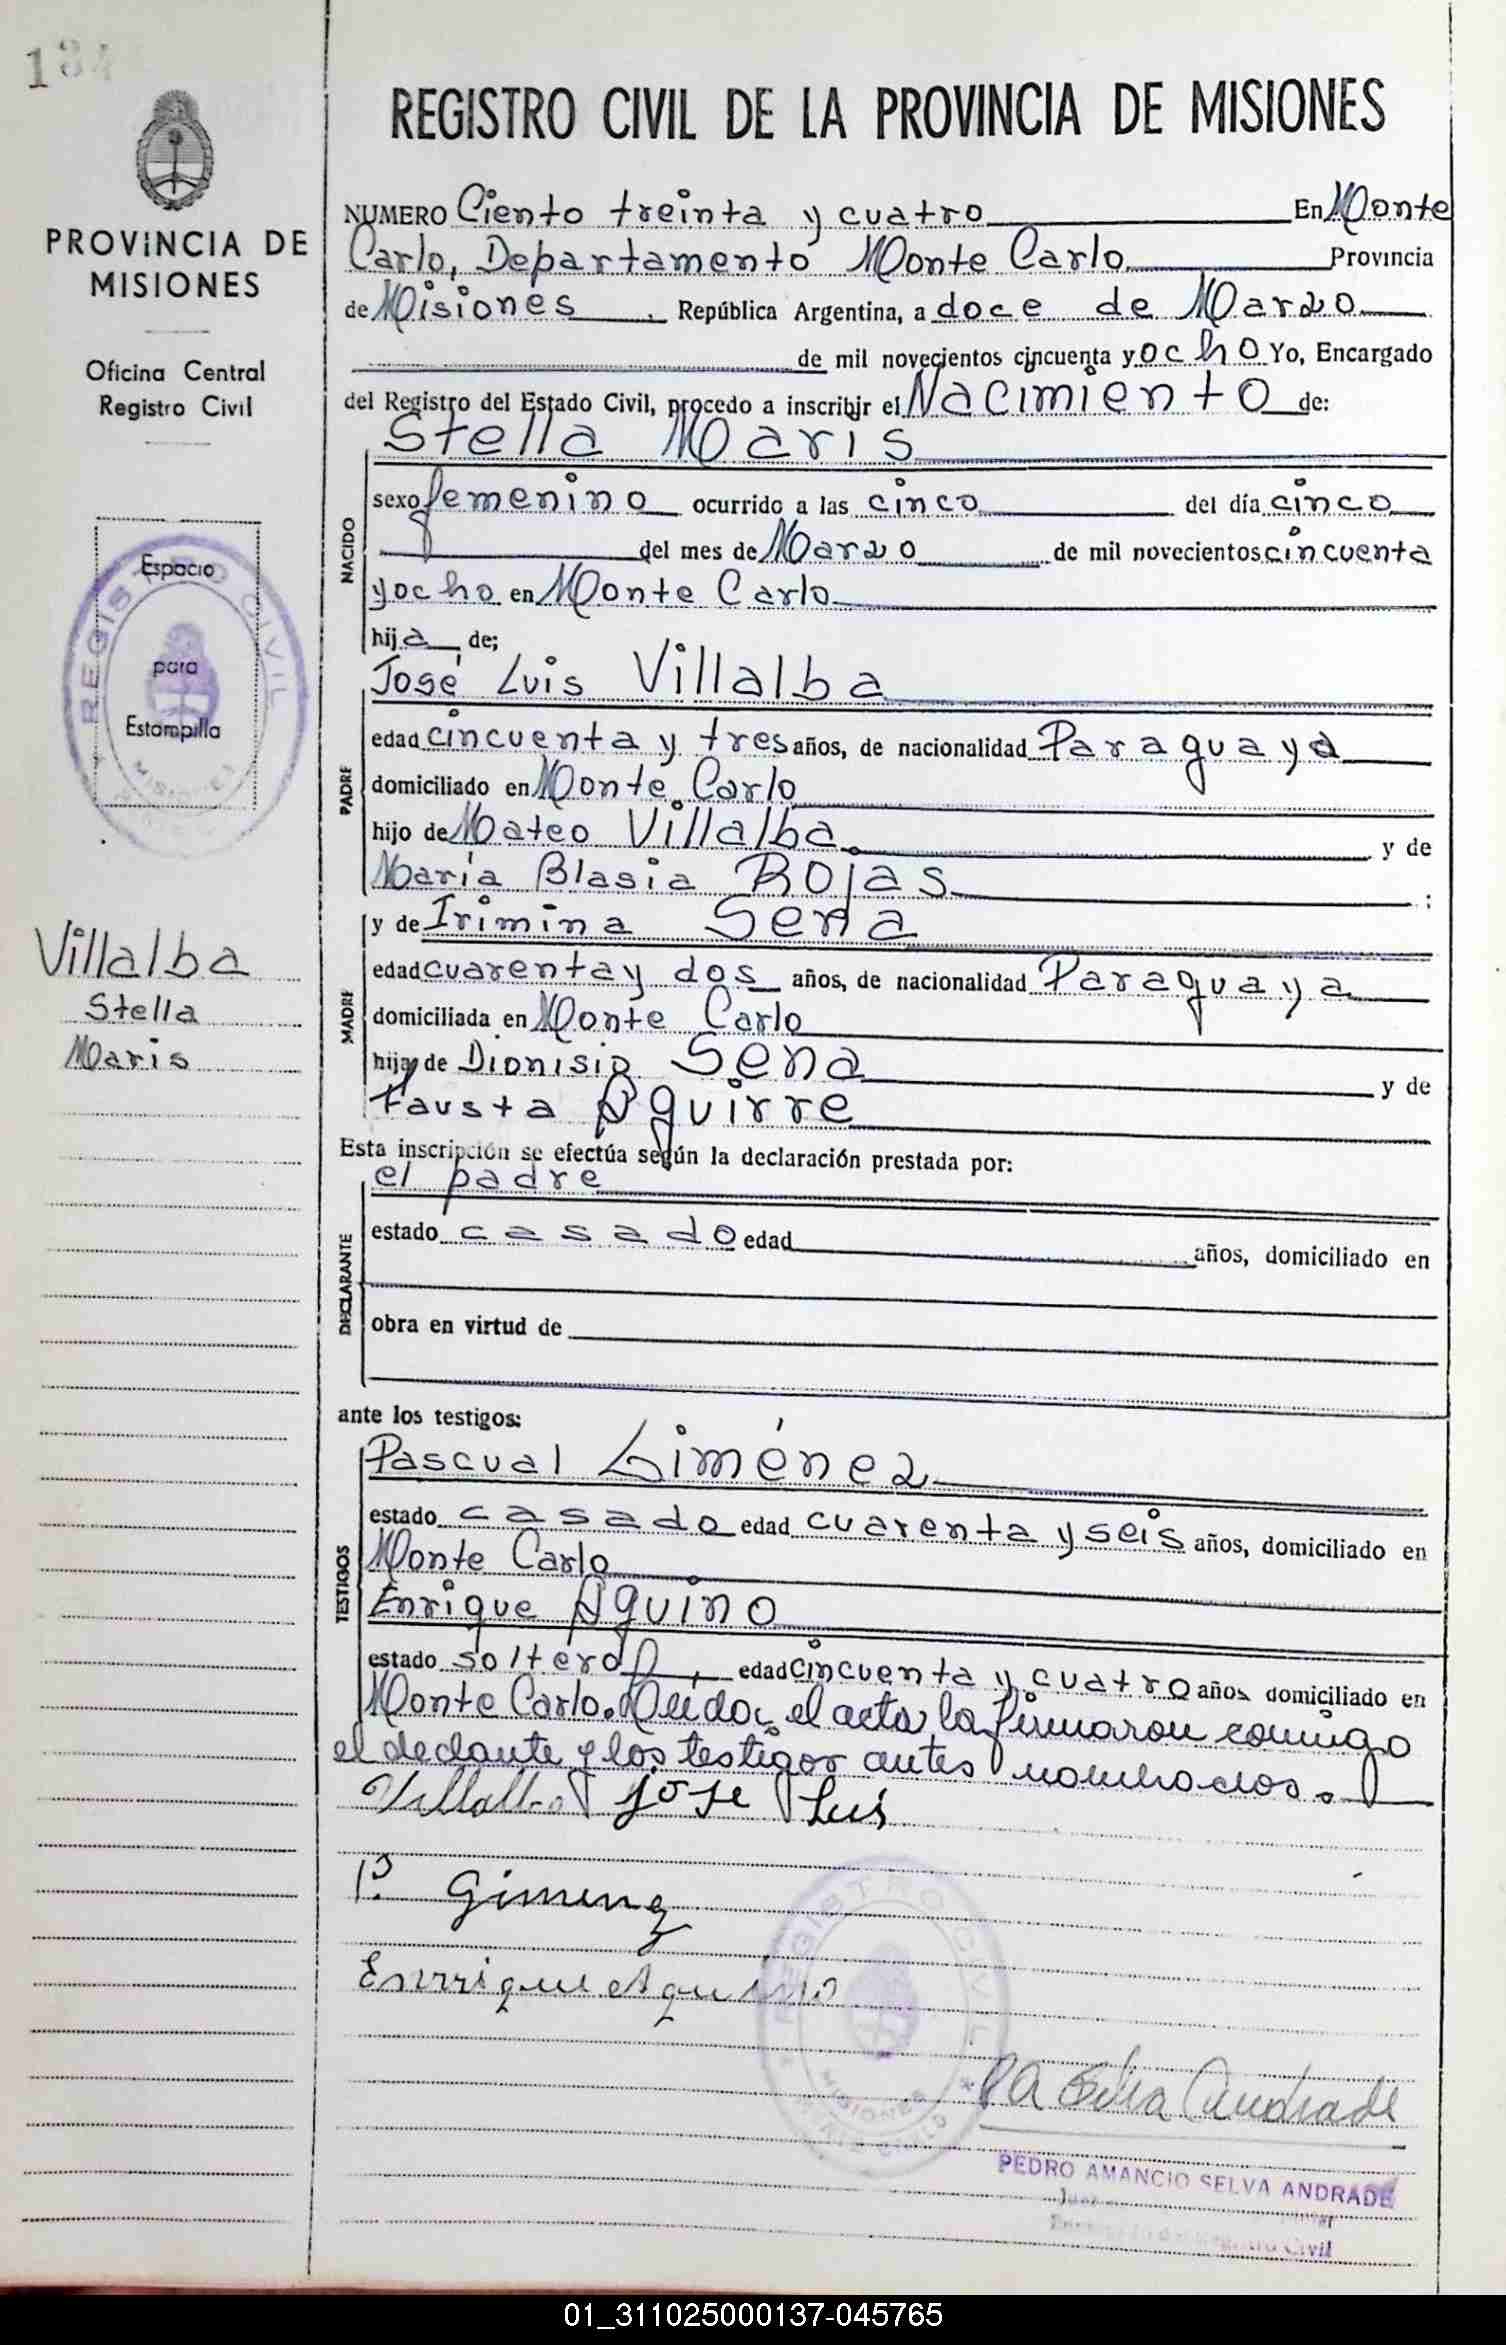 134
PROVINCIA DE
MISIONES
Oficina Central
Registro Civil
Espacio
para
Estampilla
REGISTRO CIVIL
MISIONES
Villalba
Stella
Maris
REGISTRO CIVIL DE LA PROVINCIA DE MISIONES
NUMERO Ciento treinta y cuatro En Monte
Carlo, Departamento Monte Carlo Provincia
de Misiones, República Argentina, a doce de Marzo
de mil novecientos cincuenta y ocho Yo, Encargado
del Registro del Estado Civil, procedo a inscribir el Nacimiento de:
NACIDO
Stella Maris
sexo femenino ocurrido a las cinco del día cinco
del mes de Marzo de mil novecientos cincuenta
y ocho en Monte Carlo
hija de;
PADRE
José Luis Villalba
edad cincuenta y tres años, de nacionalidad Paraguaya
domiciliado en Monte Carlo
hijo de Mateo Villalba y de
María Blasia Rojas :
MADRE
y de Irimina Sena
edad cuarenta y dos años, de nacionalidad Paraguaya
domiciliada en Monte Carlo
hija de Dionisio Sena y de
Fausta Aguirre
Esta inscripción se efectúa según la declaración prestada por:
DECLARANTE
el padre
estado casado edad años, domiciliado en
obra en virtud de
ante los testigos:
TESTIGOS
Pascual Giménez
estado casado edad cuarenta y seis años, domiciliado en
Monte Carlo
Enrique Aquino
estado soltero, edad cincuenta y cuatro años domiciliado en
Monte Carlo. Leída el acta la firmaron conmigo
el declante y los testigos antes nombrados.
Villalba José Luis
P. Gimenz
Enrrique Aquino
REGISTRO CIVIL
MISIONES
MONTE CARLO
PA Selva Andrade
PEDRO AMANCIO SELVA ANDRADE
Juez
Encargado del Registro Civil
01_311025000137-045765